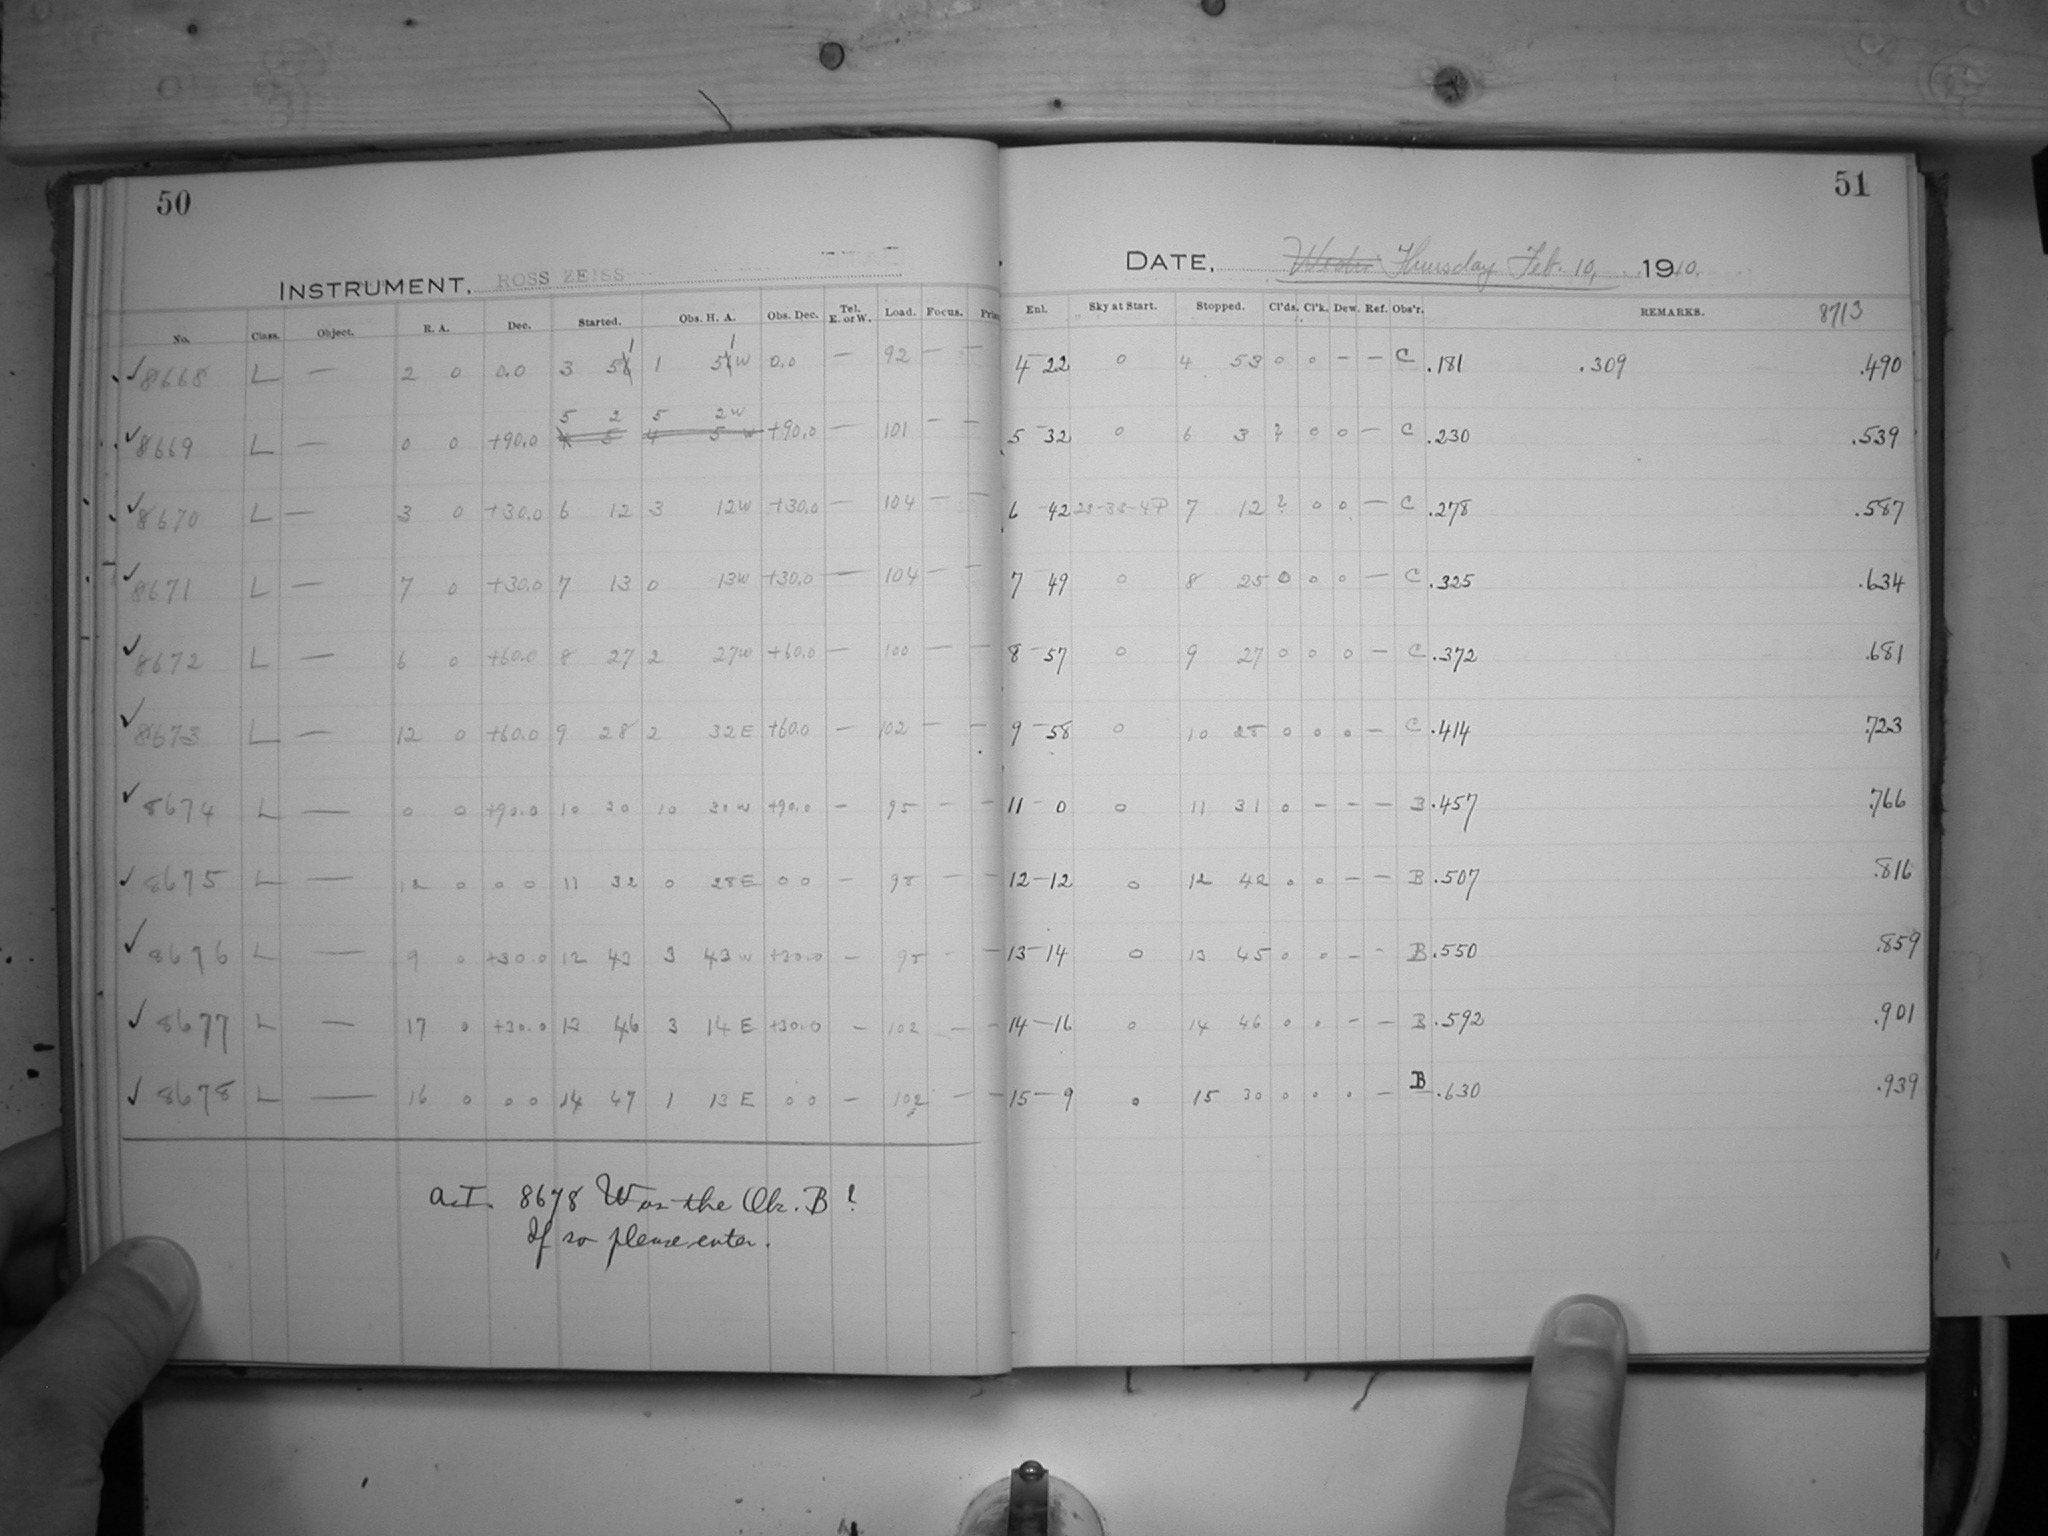 50
INSTRUMENT. ROSS ZEISS
No. Class. Object. R. A. Dec. Started. Obs. H. A. Obs. Dec. Tel. E. or W. Load. Focus.
8668 L — 2 0 0.0 3 51 1 51 W 0.0 — 92 — —
5 2 5 2 W
8669 L — 0 0 +90.0 4 5 4 5 W +90.0 — 101 — —
8670 L — 3 0 +30.0 6 12 3 12 W +30.0 — 104 — —
8671 L — 7 0 +30.0 7 13 0 13 W +30.0 — 104 — —
8672 L — 6 0 +60.0 8 27 2 27 W +60.0 — 100 — —
8673 L — 12 0 +60.0 9 28 2 32 E +60.0 — 102 — —
8674 L — 0 0 +90.0 10 30 10 30 W +90.0 — 95 — —
8675 L — 12 0 0 0 11 32 0 28 E 0 0 — 98 — —
8676 L — 9 0 +30.0 12 43 3 43 W +30.0 — 95 — —
8677 L — 17 0 +30.0 13 46 3 14 E +30.0 — 102 — —
8678 L — 16 0 0 0 14 47 1 13 E 0 0 — 102 — —
a.I. 8678 Was the Ob. B?
If so please enter.
51
DATE, Thursday Feb. 10, 1910.
Enl. Sky at Start. Stopped. Cl'ds. Cl'k. Dew. Ref. Obs'r. REMARKS. 8713
4 22 0 4 53 0 0 — — C .181 .309 .490
5 32 0 6 3 ? 0 0 — C .230 .539
6 42 23-38-4P 7 12 ? 0 0 — C .278 .587
7 49 0 8 25 0 0 0 — C .325 .634
8 57 0 9 27 0 0 0 — C .372 .681
9 58 0 10 28 0 0 0 — C .414 .723
11 0 0 11 31 0 — — — B .457 .766
12 12 0 12 42 0 0 — — B .507 .816
13 14 0 13 45 0 0 — — B .550 .859
14 16 0 14 46 0 0 — — B .592 .901
15 9 0 15 30 0 0 0 — B .630 .939